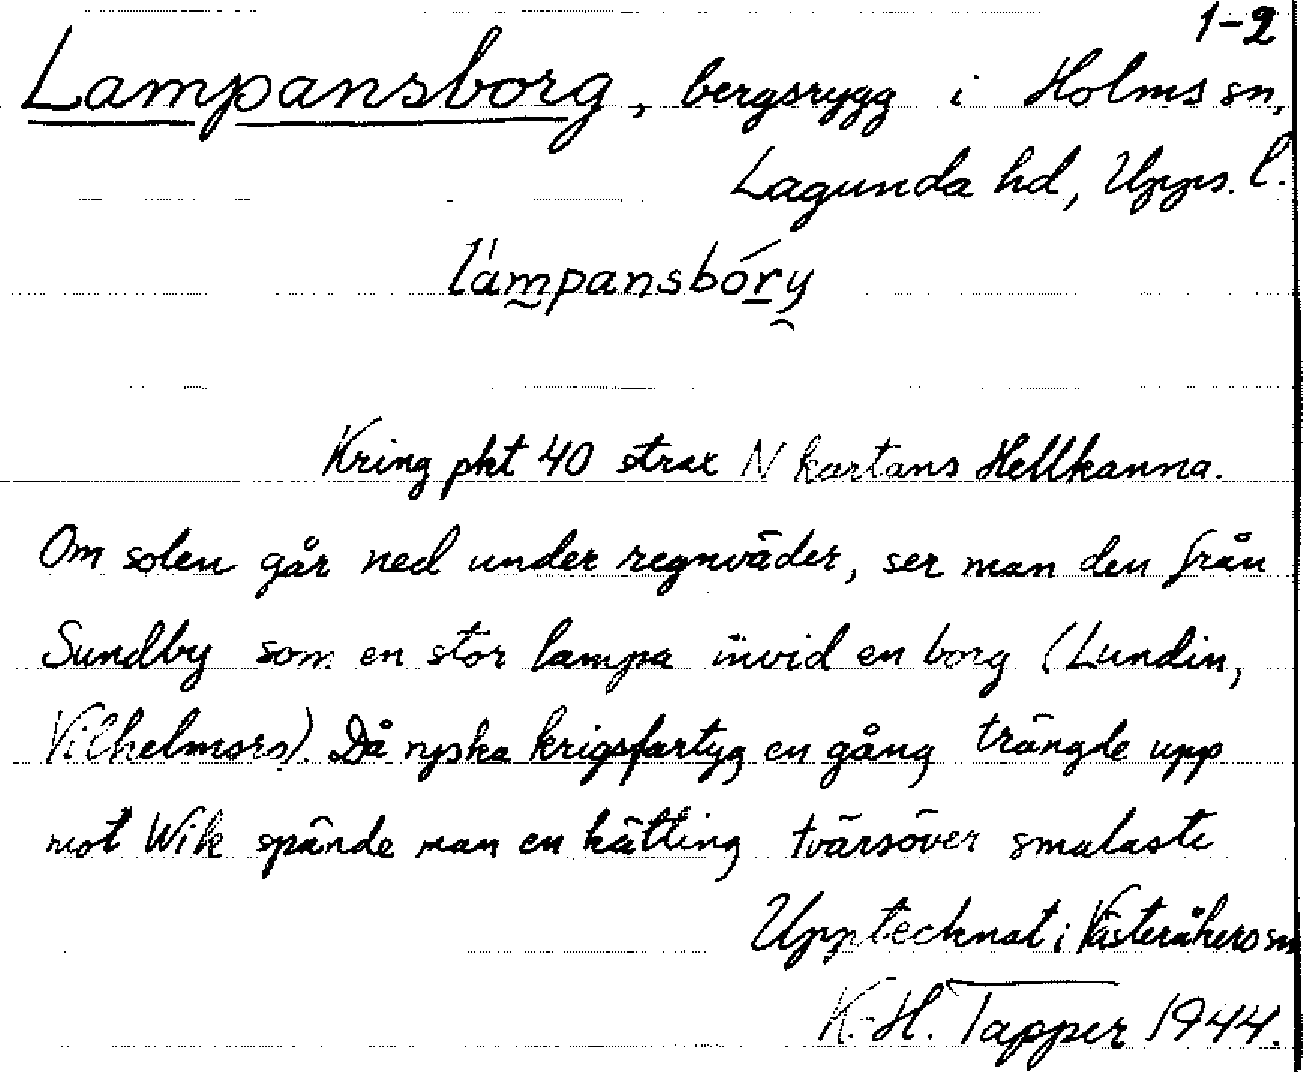 1-2
Lampansborg, bergsrygg i Holms sn,
Lagunda hd, Upps. l.
lámpansbóry
Kring pkt 40 strax N kartans Hellkanna.
Om solen går ned under regnväder, ser man den från
Sundby som en stor lampa invid en borg (Lundin,
Vilhelmsro). Då ryska krigsfartyg en gång trängde upp
mot Wik spände man en kätting tvärsöver smalaste
Upptecknat i Västeråkers sn
K.-H. Tapper 1944.